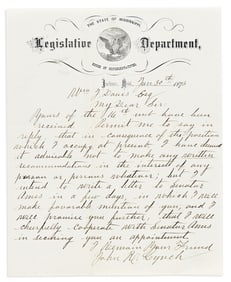 THE STATE OF MISSISSIPPI
Legislative Department,
HOUSE OF REPRESENTATIVES
Jackson, Miss., 30th 187
Davis Esq
My Dear Sir.
Yours of the inst have been
received. Permit me to say in
reply that in consequence of the position
which I occupy at present I have deemed
it advisable not to make any written
recommendations in the interest of any
person or persons whatever; but I
intend to write a letter to Senator
Ames in a few days, in which I will
make favorable mention of you, and I
will promise you further, that I will
cheerfully cooperate with Senator Ames
in securing you an appointment
I Remain Your Friend
John R. Lynch